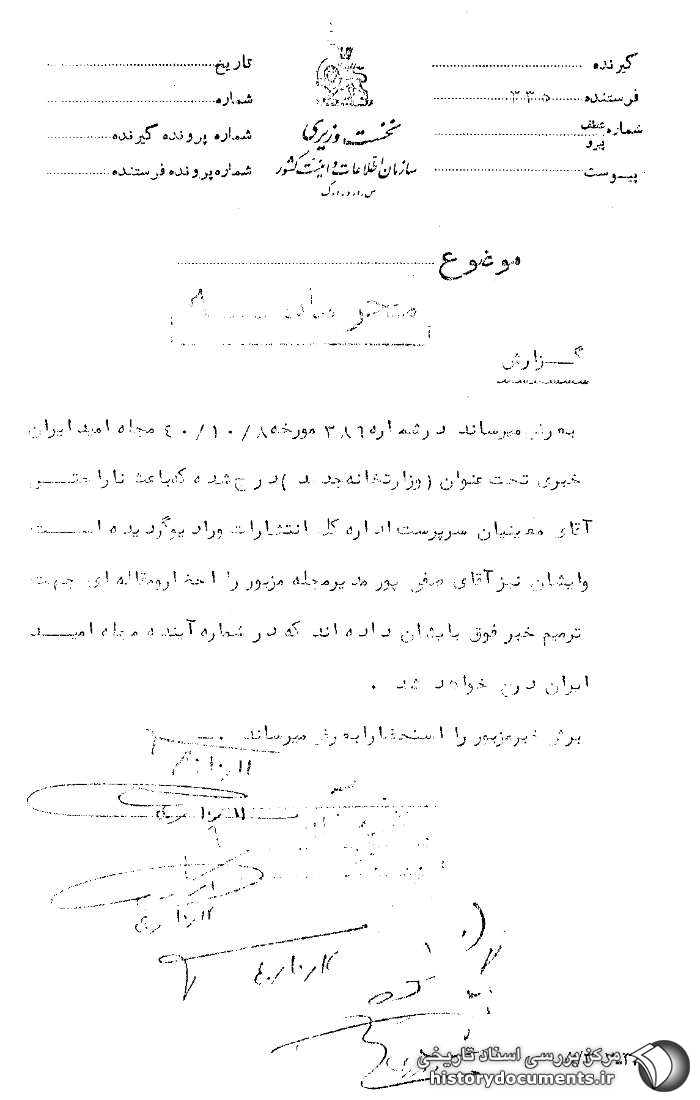 گیرنده
فرستنده ۳۳۵
شماره عطف
پیرو
پیوست
نخست وزیری
سازمان اطلاعات و امنیت کشور
س.ا.و.ا.ک
تاریخ
شماره
شماره پرونده گیرنده
شماره پرونده فرستنده
موضوع
گزارش
بعرض میرساند در شماره ۳۸۶ مورخه ۴۰/۱۰/۸ مجله امید ایران
خبری تحت عنوان (وزارتخانه جدید) درج شده که باعث ناراحتی
آقای معینیان سرپرست اداره کل انتشارات و رادیو گردیده است
و ایشان نیز آقای صفی پور مدیر مجله مزبور را احضار و مقاله ای جهت
ترمیم خبر فوق بایشان داده اند که در شماره آینده مجله امید
ایران درج خواهد شد .
خبر مزبور را استحضارا بعرض میرساند .
مرکز بررسی اسناد تاریخی
historydocuments.ir